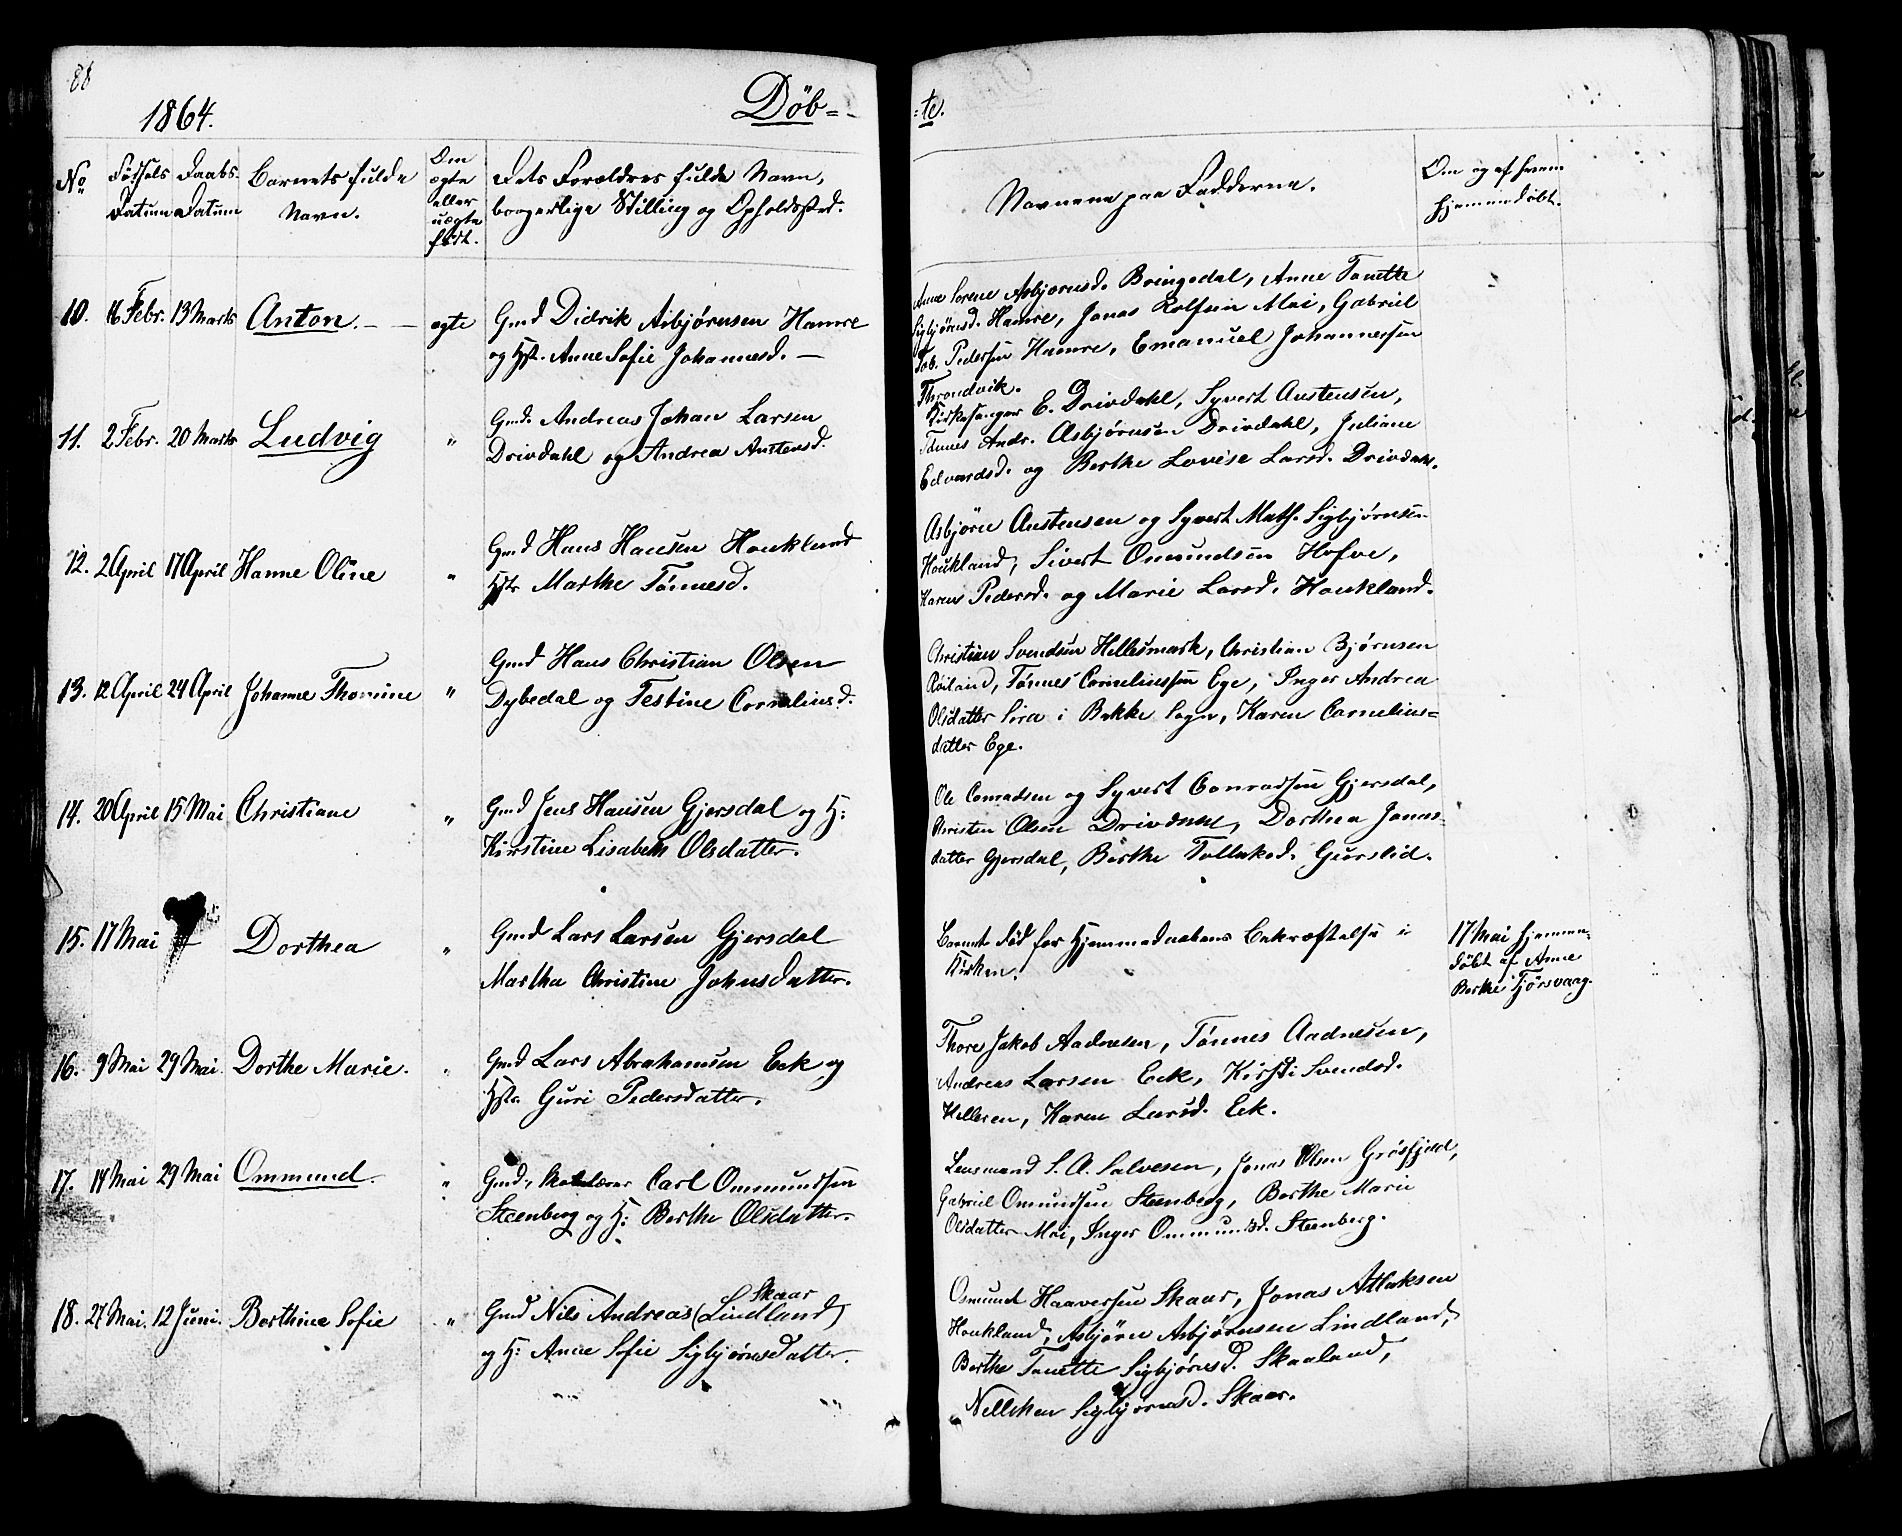 88
1864.
Døb-
-te.
No
Fødsels Datum
Daabs Datum
Barnets fulde Navn.
Om ægte eller uægte født.
Dets Forældres fulde Navn,
borgerlige Stilling og Opholdssted.
Navnene paa Fadderne.
Om og af hvem
hjemmedøbt.
10. 16 Febr. 13 Marts Anton. ægte Gmd Didrik Asbjørnsen Hamre
og Hst. Anne Sofie Johannesd.
Anne Serene Asbjørnsd. Bringedal, Anne Tonette
Sigbjørnsd. Hamre, Jonas Rolfsen Moi, Gabriel
Tob. Pedersen Hamre, Emanuel Johannessen
Throndvik.
11. 2 Febr. 20 Marts Ludvig " Gmd. Andreas Johan Larsen
Drivdahl og Andrea Austensd.
Kirkesanger E. Drivdahl, Syvert Austensen,
Tønnes Andr. Asbjørnsen Drivdahl, Juliane
Edvardsd. og Berthe Lovise Larsd. Drivdahl.
12. 2 April 17 April Hanne Oline " Gmd Hans Hansen Houkland
Hstr Marthe Tønnesd.
Asbjørn Austensen og Syvert Math. Sigbjørnsen
Houkland, Sivert Omundsen Hofve,
Karen Pedersd. og Marie Larsd. Houkland.
13. 12 April 24 April Johanne Thomine " Gmd Hans Christian Olsen
Dybedal og Testine Corneliusd.
Christian Svendsen Hellesmark, Christian Bjørnsen
Röiland, Tønnes Corneliussen Ege, Inger Andrea
Olsdatter Sira i Bakke Sogn, Karen Cornelius-
datter Ege.
14. 20 April 15 Mai Christiane " Gmd Jens Hansen Gjersdal og H:
Kirstine Lisabeth Olsdatter.
Ole Conradsen og Syvert Conradsen Gjersdal,
Christen Olsen Drivdahl, Dorthea Jonas-
datter Gjersdal, Berthe Tollaksd. Guerslid.
15. 17 Mai Dorthea " Gmd Lars Larsen Gjersdal
Martha Christine Johnsdatter.
Barnet død før Hjemmedaabens Bekræftelse i
Kirken.
17 Mai hjemme-
døbt af Anne
Berthe Tjørsvaag.
16. 9 Mai 29 Mai. Dorthe Marie. " Gmd Lars Abrahamsen Eek og
Hstr. Guri Pedersdatter.
Thore Jakob Aadnesen, Tønnes Aadnesen,
Andreas Larsen Eek, Kirsti Svendsd.
Helleren, Karen Larsd. Eek.
17. 14 Mai 29 Mai Ommund. " Gmd, Skolelærer Carl Ommundsen
Steenberg og H: Berthe Olsdatter.
Lensmand S. A. Salvesen, Jonas Olsen Grøsfjeld,
Gabriel Omundsen Steenberg, Berthe Marie
Olsdatter Moi, Inger Ommundsd. Steenberg.
18. 27 Mai. 12 Juni. Berthine Sofie " Gmd Nils Andreas (Lindland) Skaar
og H: Anne Sofie Sigbjørnsdatter.
Osmund Haaversen Skaar, Jonas Atlaksen
Houkland, Asbjørn Asbjørnsen Lindland,
Berthe Tonette Sigbjørnsd. Skaaland,
Nelliken Sigbjørnsd. Skaar.